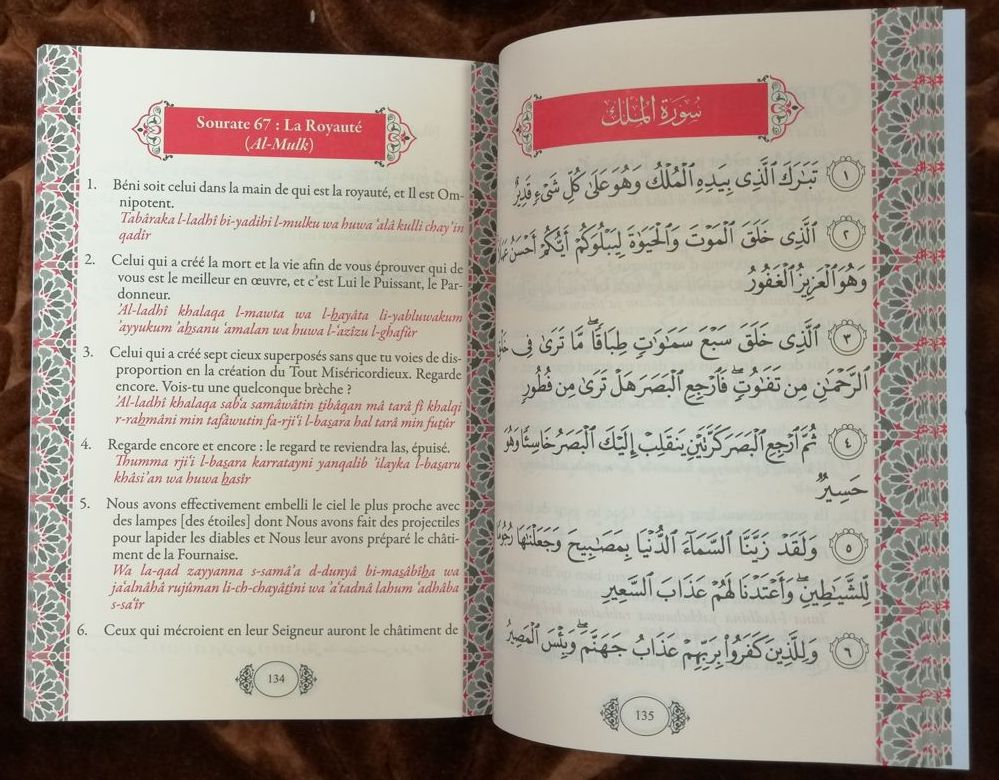 Sourate 67 : La Royauté
(Al-Mulk)
1. Béni soit celui dans la main de qui est la royauté, et Il est Om-
nipotent.
Tabâraka l-ladhî bi-yadihi l-mulku wa huwa ‘alâ kulli chay’in
qadîr
2. Celui qui a créé la mort et la vie afin de vous éprouver qui de
vous est le meilleur en œuvre, et c’est Lui le Puissant, le Par-
donneur.
’Al-ladhî khalaqa l-mawta wa l-hayâta li-yabluwakum
’ayyukum ’ahsanu ‘amalan wa huwa l-‘azîzu l-ghafûr
3. Celui qui a créé sept cieux superposés sans que tu voies de dis-
proportion en la création du Tout Miséricordieux. Regarde
encore. Vois-tu une quelconque brèche ?
’Al-ladhî khalaqa sab‘a samâwâtin tibâqan mâ tarâ fî khalqi
r-rahmâni min tafâwutin fa-rji‘i l-basara hal tarâ min futûr
4. Regarde encore et encore : le regard te reviendra las, épuisé.
Thumma rji‘i l-basara karratayni yanqalib ’ilayka l-basaru
khâsi’an wa huwa hasîr
5. Nous avons effectivement embelli le ciel le plus proche avec
des lampes [des étoiles] dont Nous avons fait des projectiles
pour lapider les diables et Nous leur avons préparé le châti-
ment de la Fournaise.
Wa la-qad zayyanna s-samâ’a d-dunyâ bi-masâbîha wa
ja‘alnâhâ rujûman li-ch-chayâtîni wa ’a‘tadnâ lahum ‘adhâba
s-sa‘îr
6. Ceux qui mécroient en leur Seigneur auront le châtiment de
134
سُورَةُ المُلْكِ
١ تَبَٰرَكَ ٱلَّذِى بِيَدِهِ ٱلْمُلْكُ وَهُوَ عَلَىٰ كُلِّ شَىْءٍ قَدِيرٌ
٢ ٱلَّذِى خَلَقَ ٱلْمَوْتَ وَٱلْحَيَوٰةَ لِيَبْلُوَكُمْ أَيُّكُمْ أَحْسَنُ
وَهُوَ ٱلْعَزِيزُ ٱلْغَفُورُ
٣ ٱلَّذِى خَلَقَ سَبْعَ سَمَٰوَٰتٍ طِبَاقًا ۖ مَّا تَرَىٰ فِى
ٱلرَّحْمَٰنِ مِن تَفَٰوُتٍ ۖ فَٱرْجِعِ ٱلْبَصَرَ هَلْ تَرَىٰ مِن فُطُورٍ
٤ ثُمَّ ٱرْجِعِ ٱلْبَصَرَ كَرَّتَيْنِ يَنقَلِبْ إِلَيْكَ ٱلْبَصَرُ خَاسِئًا وَهُوَ
حَسِيرٌ
٥ وَلَقَدْ زَيَّنَّا ٱلسَّمَآءَ ٱلدُّنْيَا بِمَصَٰبِيحَ وَجَعَلْنَٰهَا رُجُومًا
لِّلشَّيَٰطِينِ ۖ وَأَعْتَدْنَا لَهُمْ عَذَابَ ٱلسَّعِيرِ
٦ وَلِلَّذِينَ كَفَرُوا۟ بِرَبِّهِمْ عَذَابُ جَهَنَّمَ ۖ وَبِئْسَ ٱلْمَصِيرُ
135